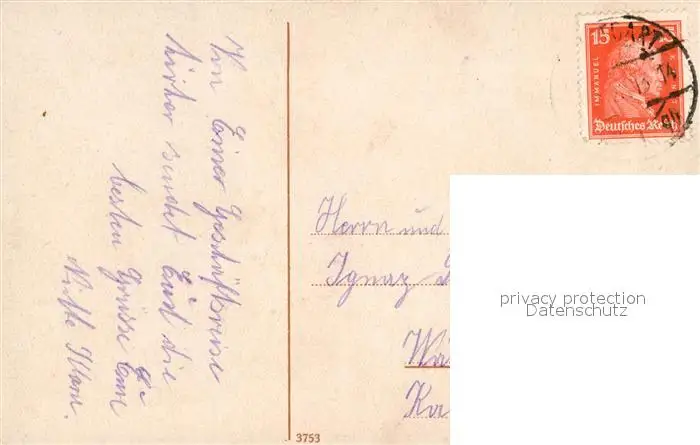 Von Einer Geschäftsreise
hierher sendet Euch die
besten Grüsse Eure
15
IMMANUEL
Deutsches Reich
Herrn und
Ignaz
privacy protection
Datenschutz
3753